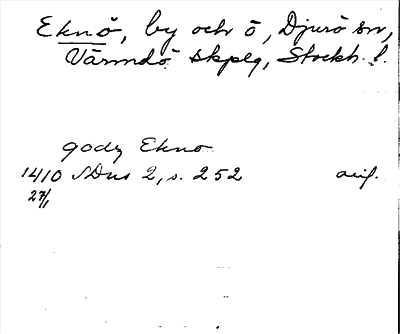 Eknö, by och ö, Djurö sn,
Värmdö skplg, Stockh. l.
godz Ekno
1410 SDns 2, s. 252 avif.
27/1